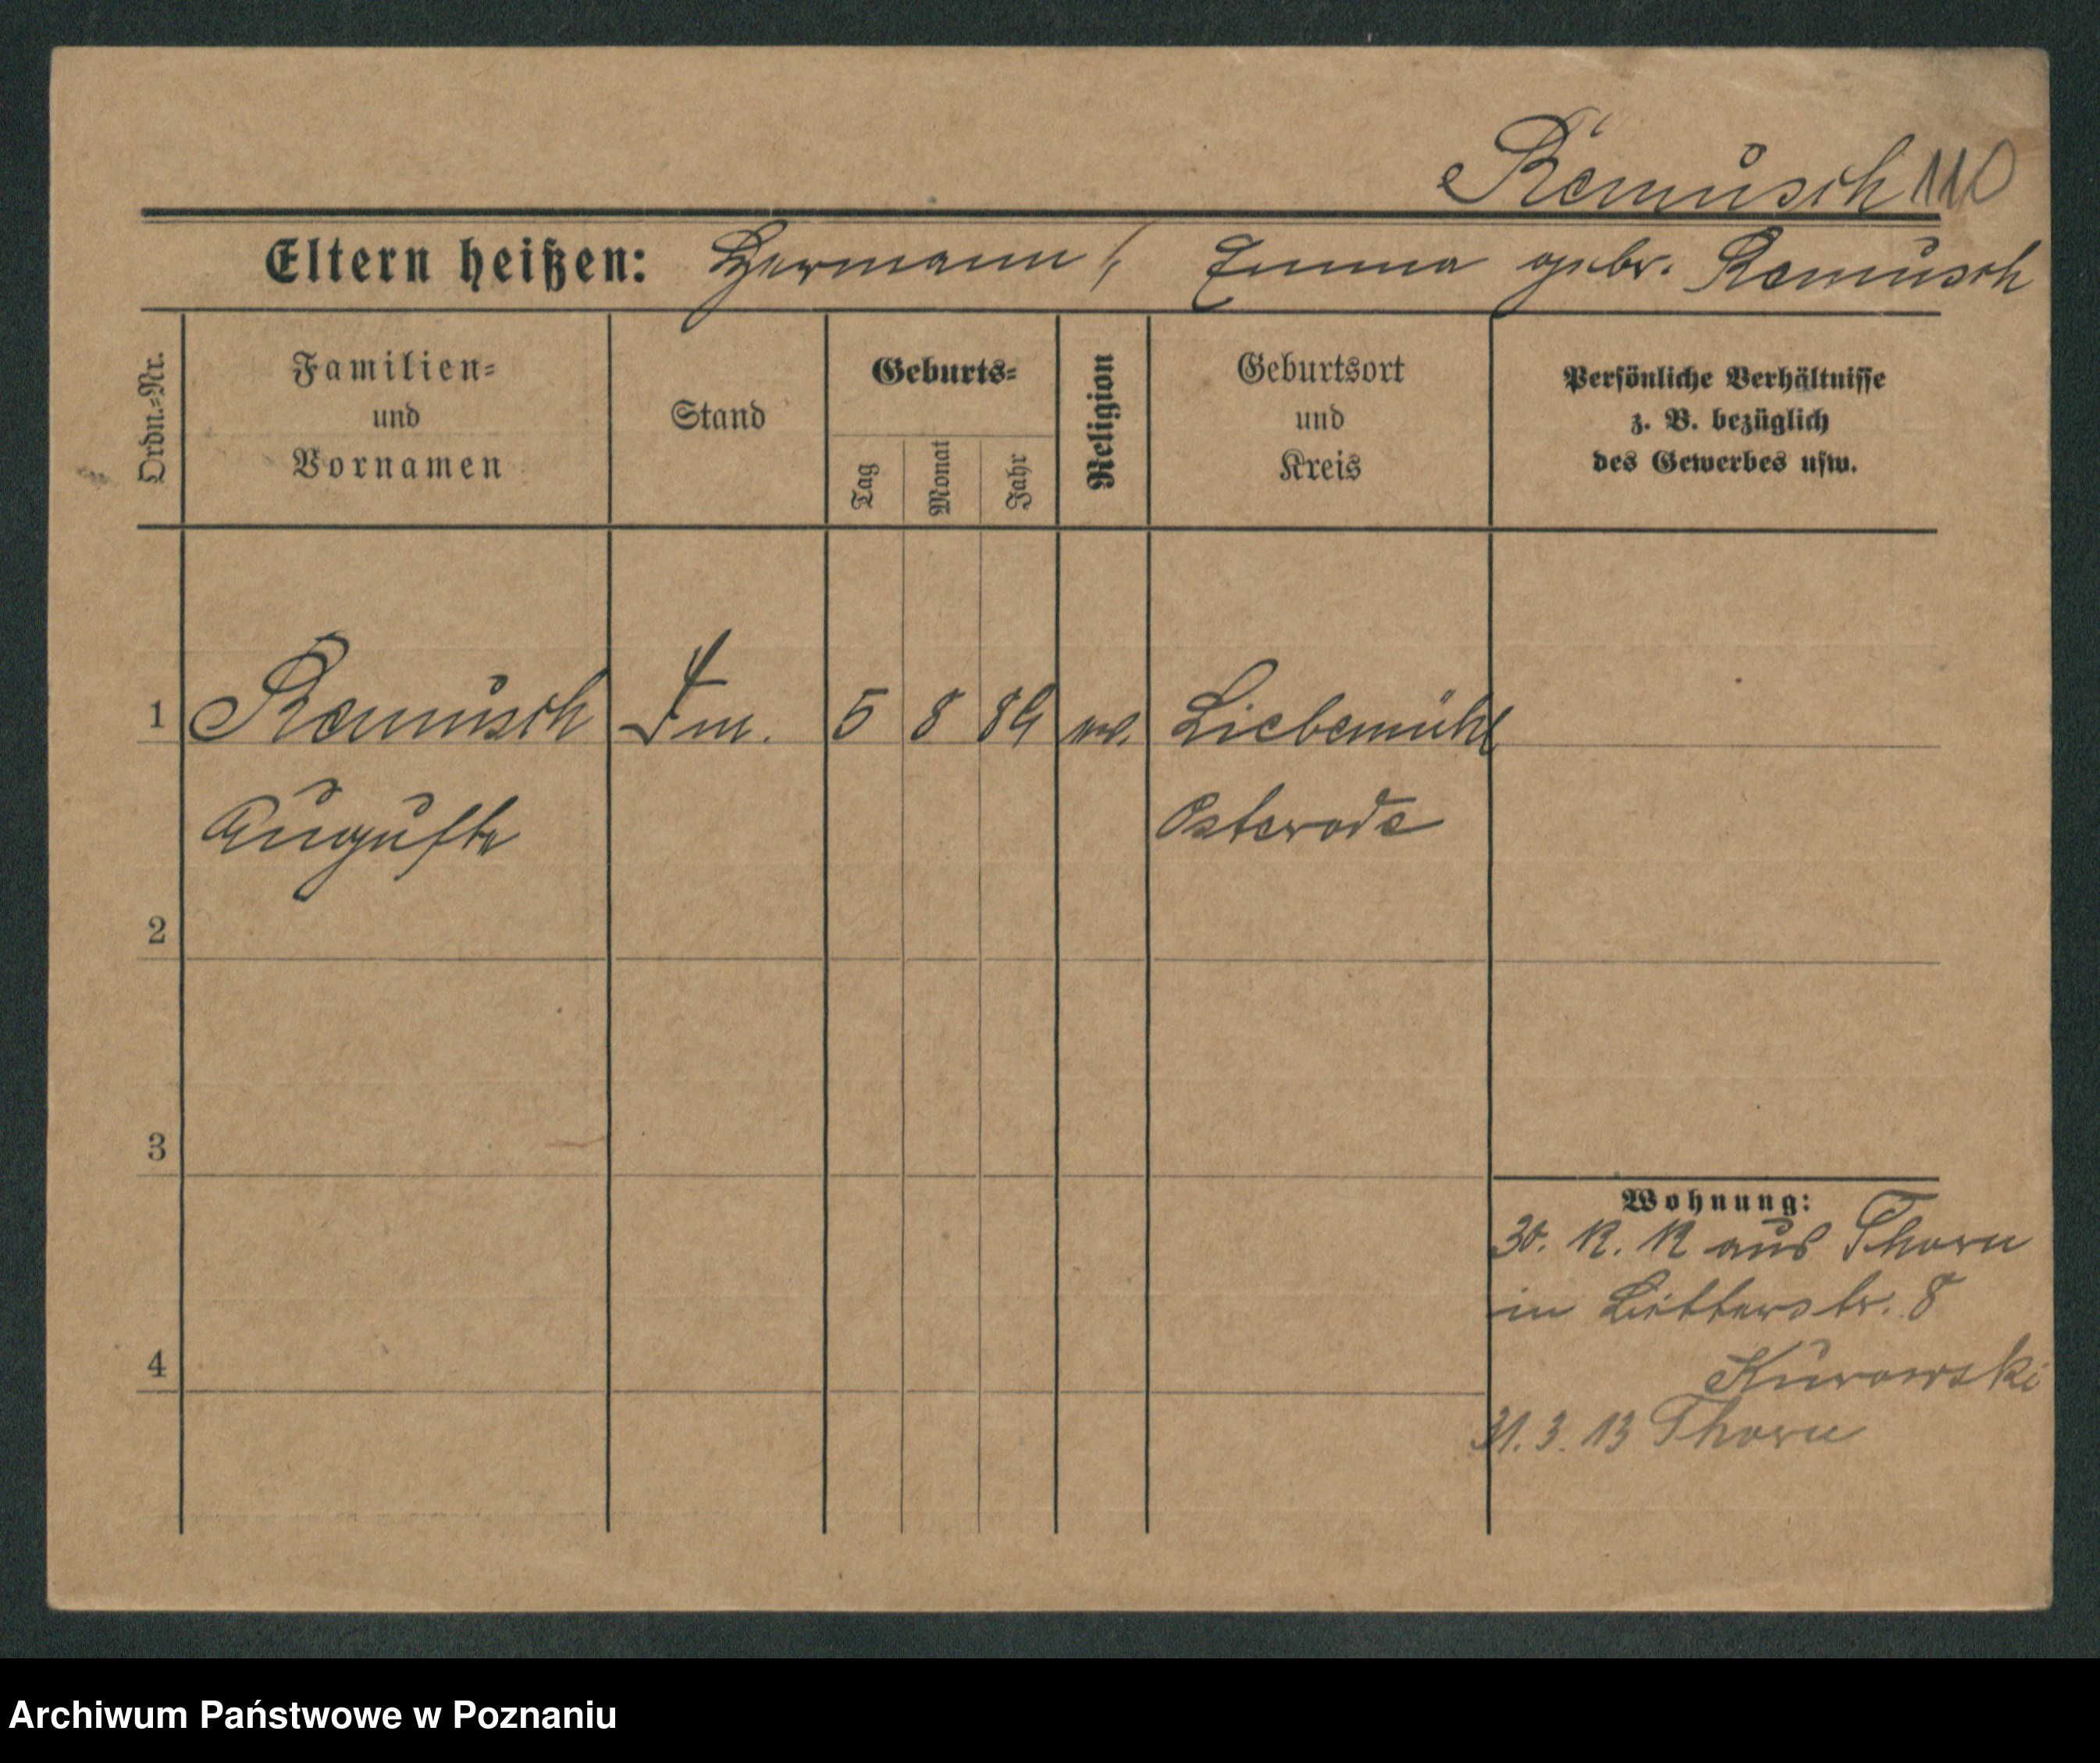 Remusch 110
Eltern heißen: Hermann / Emma gebr. Remusch
Ordn.=Nr.
Familien=
und
Vornamen
Stand
Geburts=
Tag
Monat
Jahr
Religion
Geburtsort
und
Kreis
Persönliche Verhältnisse
z. B. bezüglich
des Gewerbes usw.
1 Remusch 5 8 89 Liebemühl
Auguste Osterode
2
3
4
Wohnung:
30. 12. 12 aus Thorn
in 8
Kurowski
31. 3. 13 Thorn
Archiwum Państwowe w Poznaniu